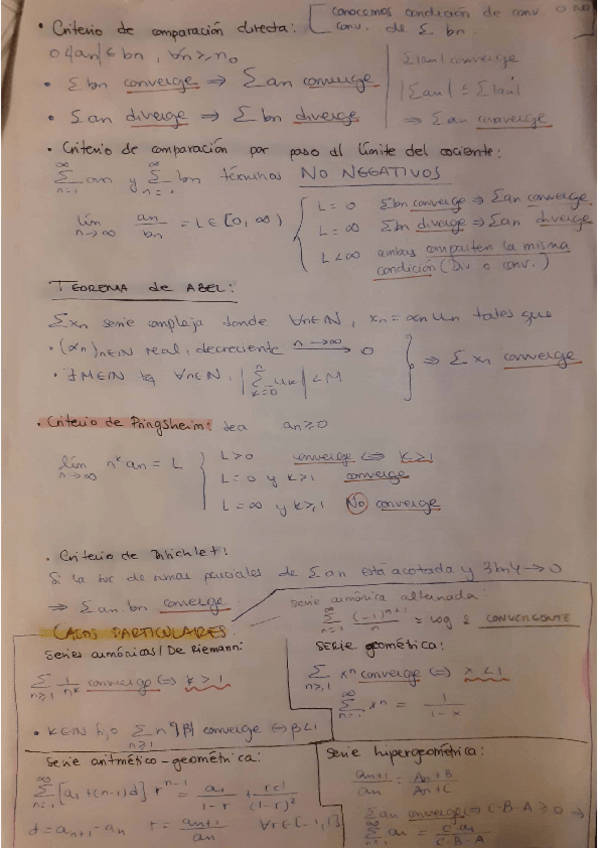 • Criterio de comparación directa: [Conocemos condición de conv. o no
conv. de Σ bn.]
0 ≤ an ≤ bn, ∀n ≥ n₀
• Σ bn converge ⇒ Σ an converge
• Σ an diverge ⇒ Σ bn diverge
Σ|an| converge
|Σ an| ≤ Σ|an|
⇒ Σ an converge
• Criterio de comparación por paso al límite del cociente:
∞ Σ n=1 an y ∞ Σ n=1 bn términos NO NEGATIVOS
lím n→∞ an/bn = L ∈ [0, ∞)
L = 0 Σ bn converge ⇒ Σ an converge.
L = ∞ Σ bn diverge ⇒ Σ an diverge
L < ∞ ambas comparten la misma
condición (Div. o conv.)
TEOREMA de ABEL:
Σ xn serie compleja donde ∀n∈ℕ, xn = αn un tales que
• (αn)n∈ℕ real, decreciente n→∞ → 0
• ∃M∈ℕ tq ∀n∈ℕ, |n Σ k=0 uk| < M
⇒ Σ xn converge
• Criterio de Pringsheim: Sea an ≥ 0
lím n→∞ nᵏ an = L
L > 0 converge ⇔ k > 1
L = 0 y k > 1 converge
L = ∞ y k ≥ 1 No converge
• Criterio de Dirichlet:
Si la suc de sumas parciales de Σ an está acotada y {bn} → 0
⇒ Σ an·bn converge
Serie armónica alternada:
∞ Σ n=1 (-1)ⁿ⁺¹/n = log 2 CONVERGENTE
CASOS PARTICULARES
Series armónicas / De Riemann:
Σ n≥1 1/nᵏ converge ⇔ k > 1
Serie geométrica:
Σ n≥1 xⁿ converge ⇔ x < 1
∞ Σ xⁿ = 1/(1-x)
Serie aritmético-geométrica:
∞ Σ n=1 [a₁ + (n-1)d] rⁿ⁻¹ = a₁/(1-r) + rd/(1-r)²
d = an+1 - an r = an+1/an
Serie hipergeométrica:
an+1/an = An+B/An+C
Σ an converge ⇔ C-B-A > 0 →
∞ Σ n=1 an = C·a₁/C-B-A